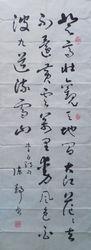 登高壮观天地间大江茫茫去
不还黄云万里动风色白
波九道流雪山